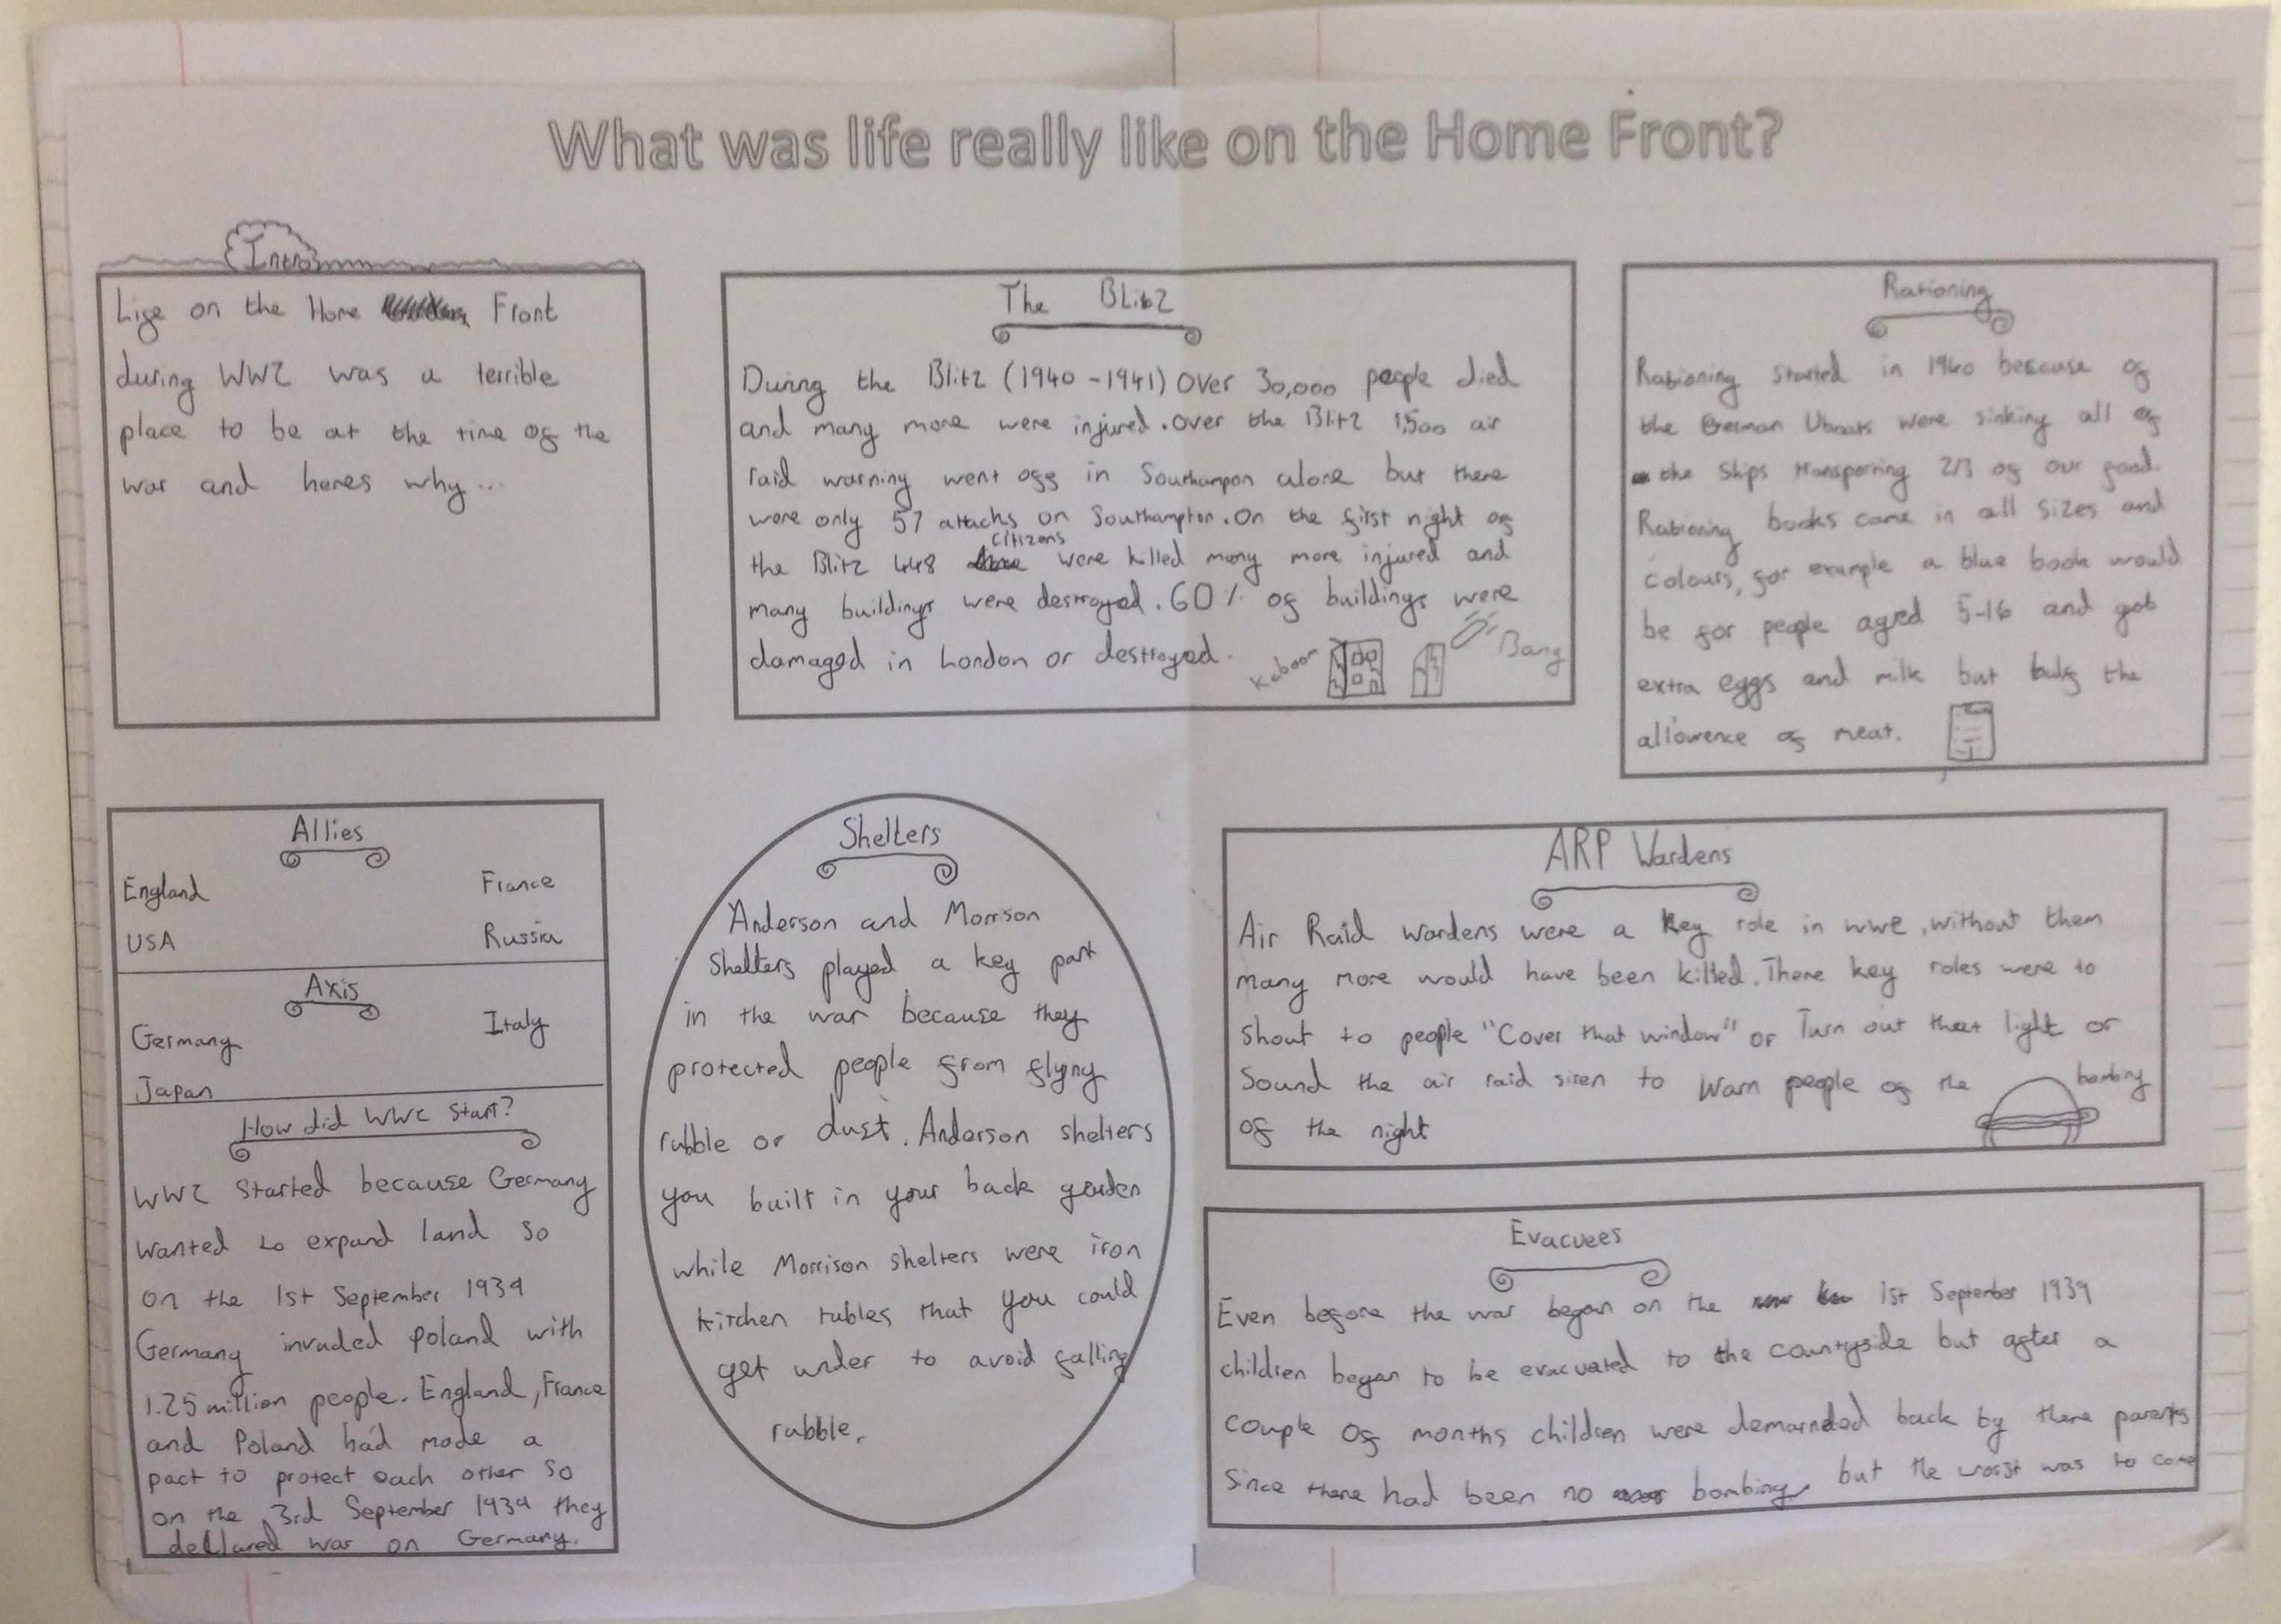 What was life really like on the Home Front?
Intro
Life on the Home Front
during WW2 was a terrible
place to be at the time of the
war and heres why...
The Blitz
During the Blitz (1940-1941) Over 30,000 people died
and many more were injured. Over the Blitz 1,500 air
raid warning went off in Southampon alone but there
were only 57 attacks on Southampton. On the first night of
citizens
the Blitz 448 were killed many more injured and
many buildings were destroyed. 60% of buildings were
damaged in London or destroyed.
Kaboom
Bang
Rationing
Rationing started in 1940 because of
the German Uboats were sinking all of
the ships transporting 2/3 of our food.
Rationing books came in all sizes and
colours, for example a blue book would
be for people aged 5-16 and got
extra eggs and milk but half the
allowence of meat.
Allies
England France
USA Russia
Axis
Germany Italy
Japan
How did WW2 start?
WW2 started because Germany
wanted to expand land so
on the 1st September 1939
Germany invaded Poland with
1.25 million people. England, France
and Poland had made a
pact to protect each other so
on the 3rd September 1939 they
declared war on Germany.
Shelters
Anderson and Morrison
Shelters played a key part
in the war because they
protected people from flying
rubble or dust. Anderson shelters
you built in your back garden
while Morrison shelters were iron
kitchen tables that you could
get under to avoid falling
rubble.
ARP Wardens
Air Raid wardens were a key role in WW2, without them
many more would have been killed. There key roles were to
shout to people "Cover that window" or Turn out that light or
Sound the air raid siren to warn people of the bombing
of the night
Evacuees
Even before the war began on the 1st September 1939
children began to be evacuated to the countryside but after a
couple of months children were demanded back by there parents
since there had been no bombing, but the worst was to come